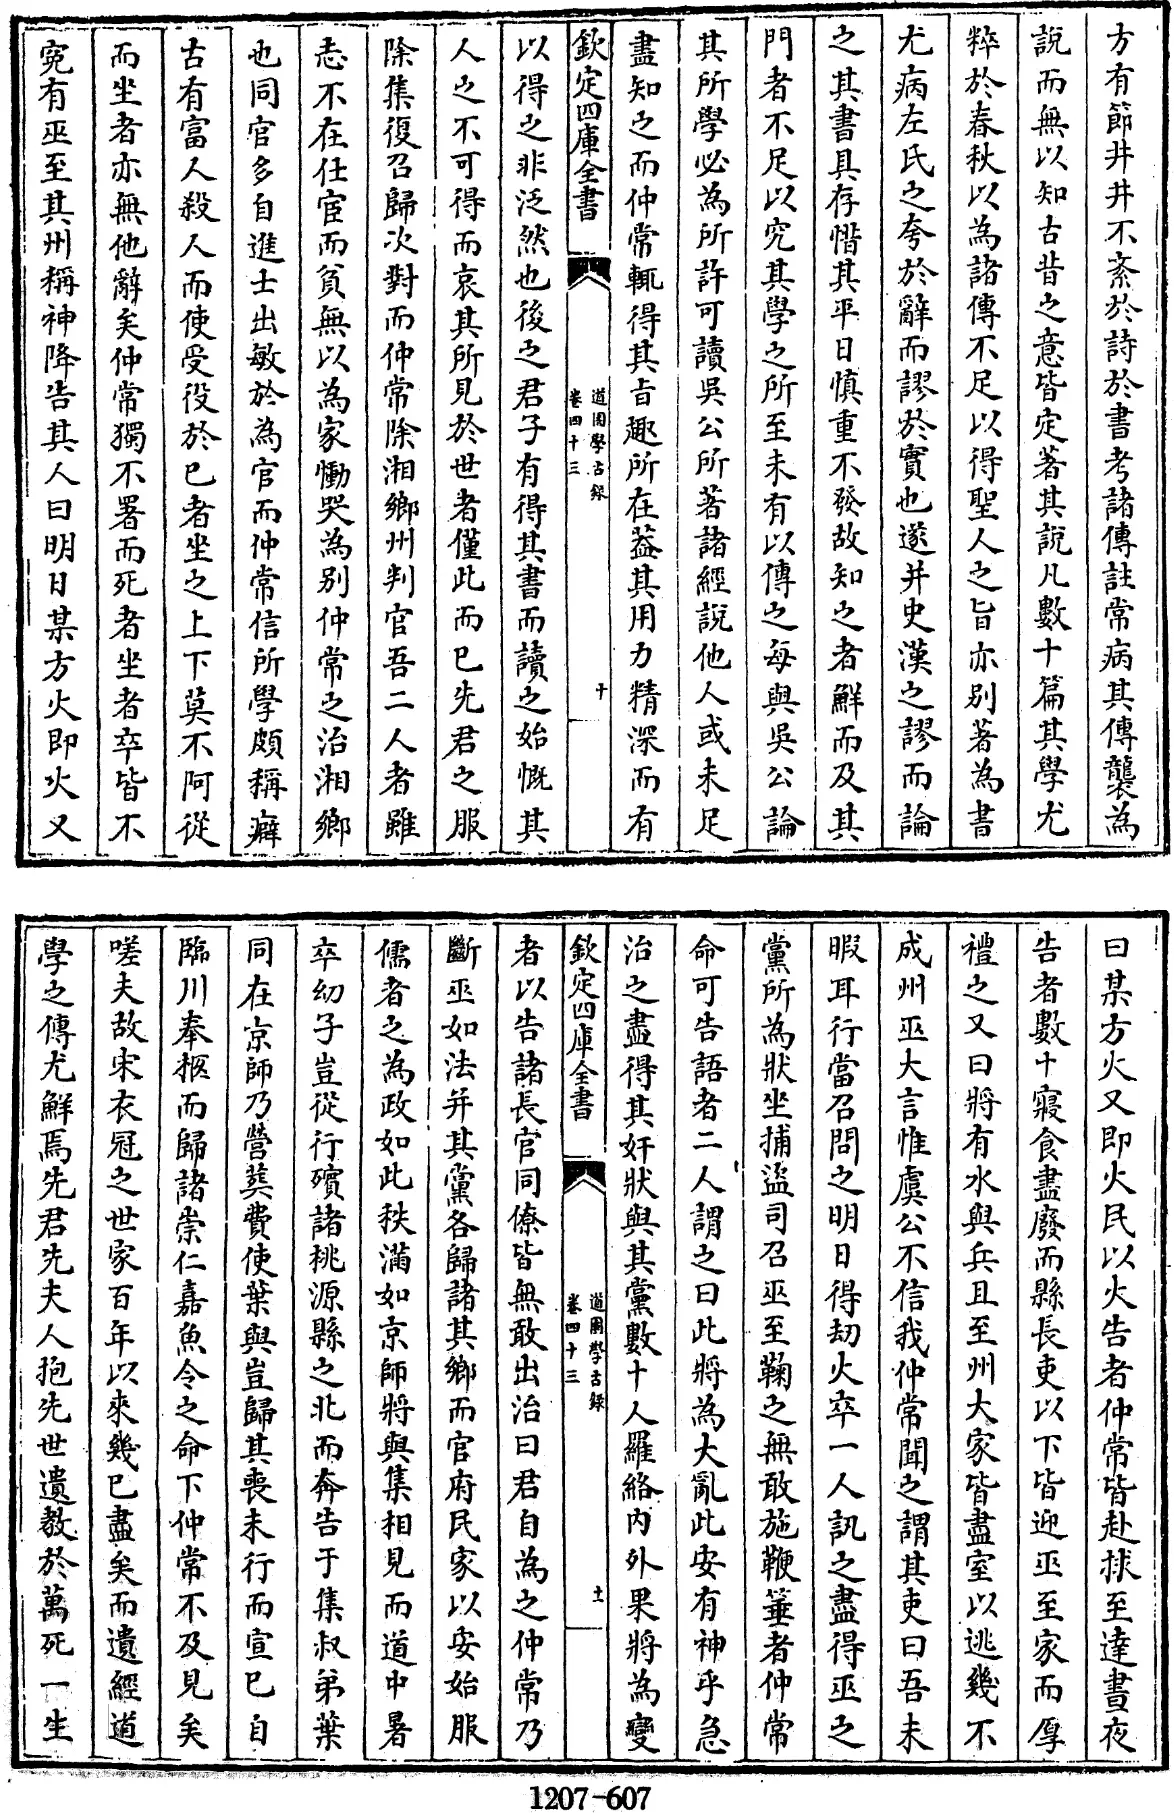 方有節井井不紊於詩於書考諸傳註常病其傳襲為
說而無以知古昔之意皆定著其說凡數十篇其學尤
粹於春秋以為諸傳不足以得聖人之旨亦別著為書
尤病左氏之夸於辭而謬於實也遂并史漢之謬而論
之其書具存惜其平日慎重不發故知之者鮮而及其
門者不足以究其學之所至未有以傳之每與吳公論
其所學必為所許可讀吳公所著諸經說他人或未足
盡知之而仲常輒得其旨趣所在葢其用力精深而有
欽定四庫全書
道園學古錄
卷四十三
十
以得之非泛然也後之君子有得其書而讀之始慨其
人之不可得而哀其所見於世者僅此而已先君之服
除集復召歸次對而仲常除湘鄉州判官吾二人者雖
志不在仕宦而貧無以為家慟哭為別仲常之治湘鄉
也同官多自進士出敏於為官而仲常信所學頗稱癖
古有富人殺人而使受役於已者坐之上下莫不阿從
而坐者亦無他辭矣仲常獨不署而死者坐者卒皆不
寃有巫至其州稱神降告其人曰明日某方火即火又
曰某方火又即火民以火告者仲常皆赴捄至達晝夜
告者數十寢食盡廢而縣長吏以下皆迎巫至家而厚
禮之又曰將有水與兵且至州大家皆盡室以逃幾不
成州巫大言惟虞公不信我仲常聞之謂其吏曰吾未
暇耳行當召問之明日得刼火卒一人訊之盡得巫之
黨所為狀坐捕盜司召巫至鞠之無敢施鞭箠者仲常
命可告語者二人謂之曰此將為大亂此安有神乎急
治之盡得其奸狀與其黨數十人羅絡内外果將為變
欽定四庫全書
道園學古錄
卷四十三
十一
者以告諸長官同僚皆無敢出治曰君自為之仲常乃
斷巫如法并其黨各歸諸其鄉而官府民家以安始服
儒者之為政如此秩滿如京師將與集相見而道中暑
卒幼子豈從行殯諸桃源縣之北而奔告于集叔弟葉
同在京師乃營葬費使葉與豈歸其喪未行而宣已自
臨川奉柩而歸諸崇仁嘉魚令之命下仲常不及見矣
嗟夫故宋衣冠之世家百年以來幾已盡矣而遺經道
學之傳尤鮮焉先君先夫人抱先世遺教於萬死一生
1207-607